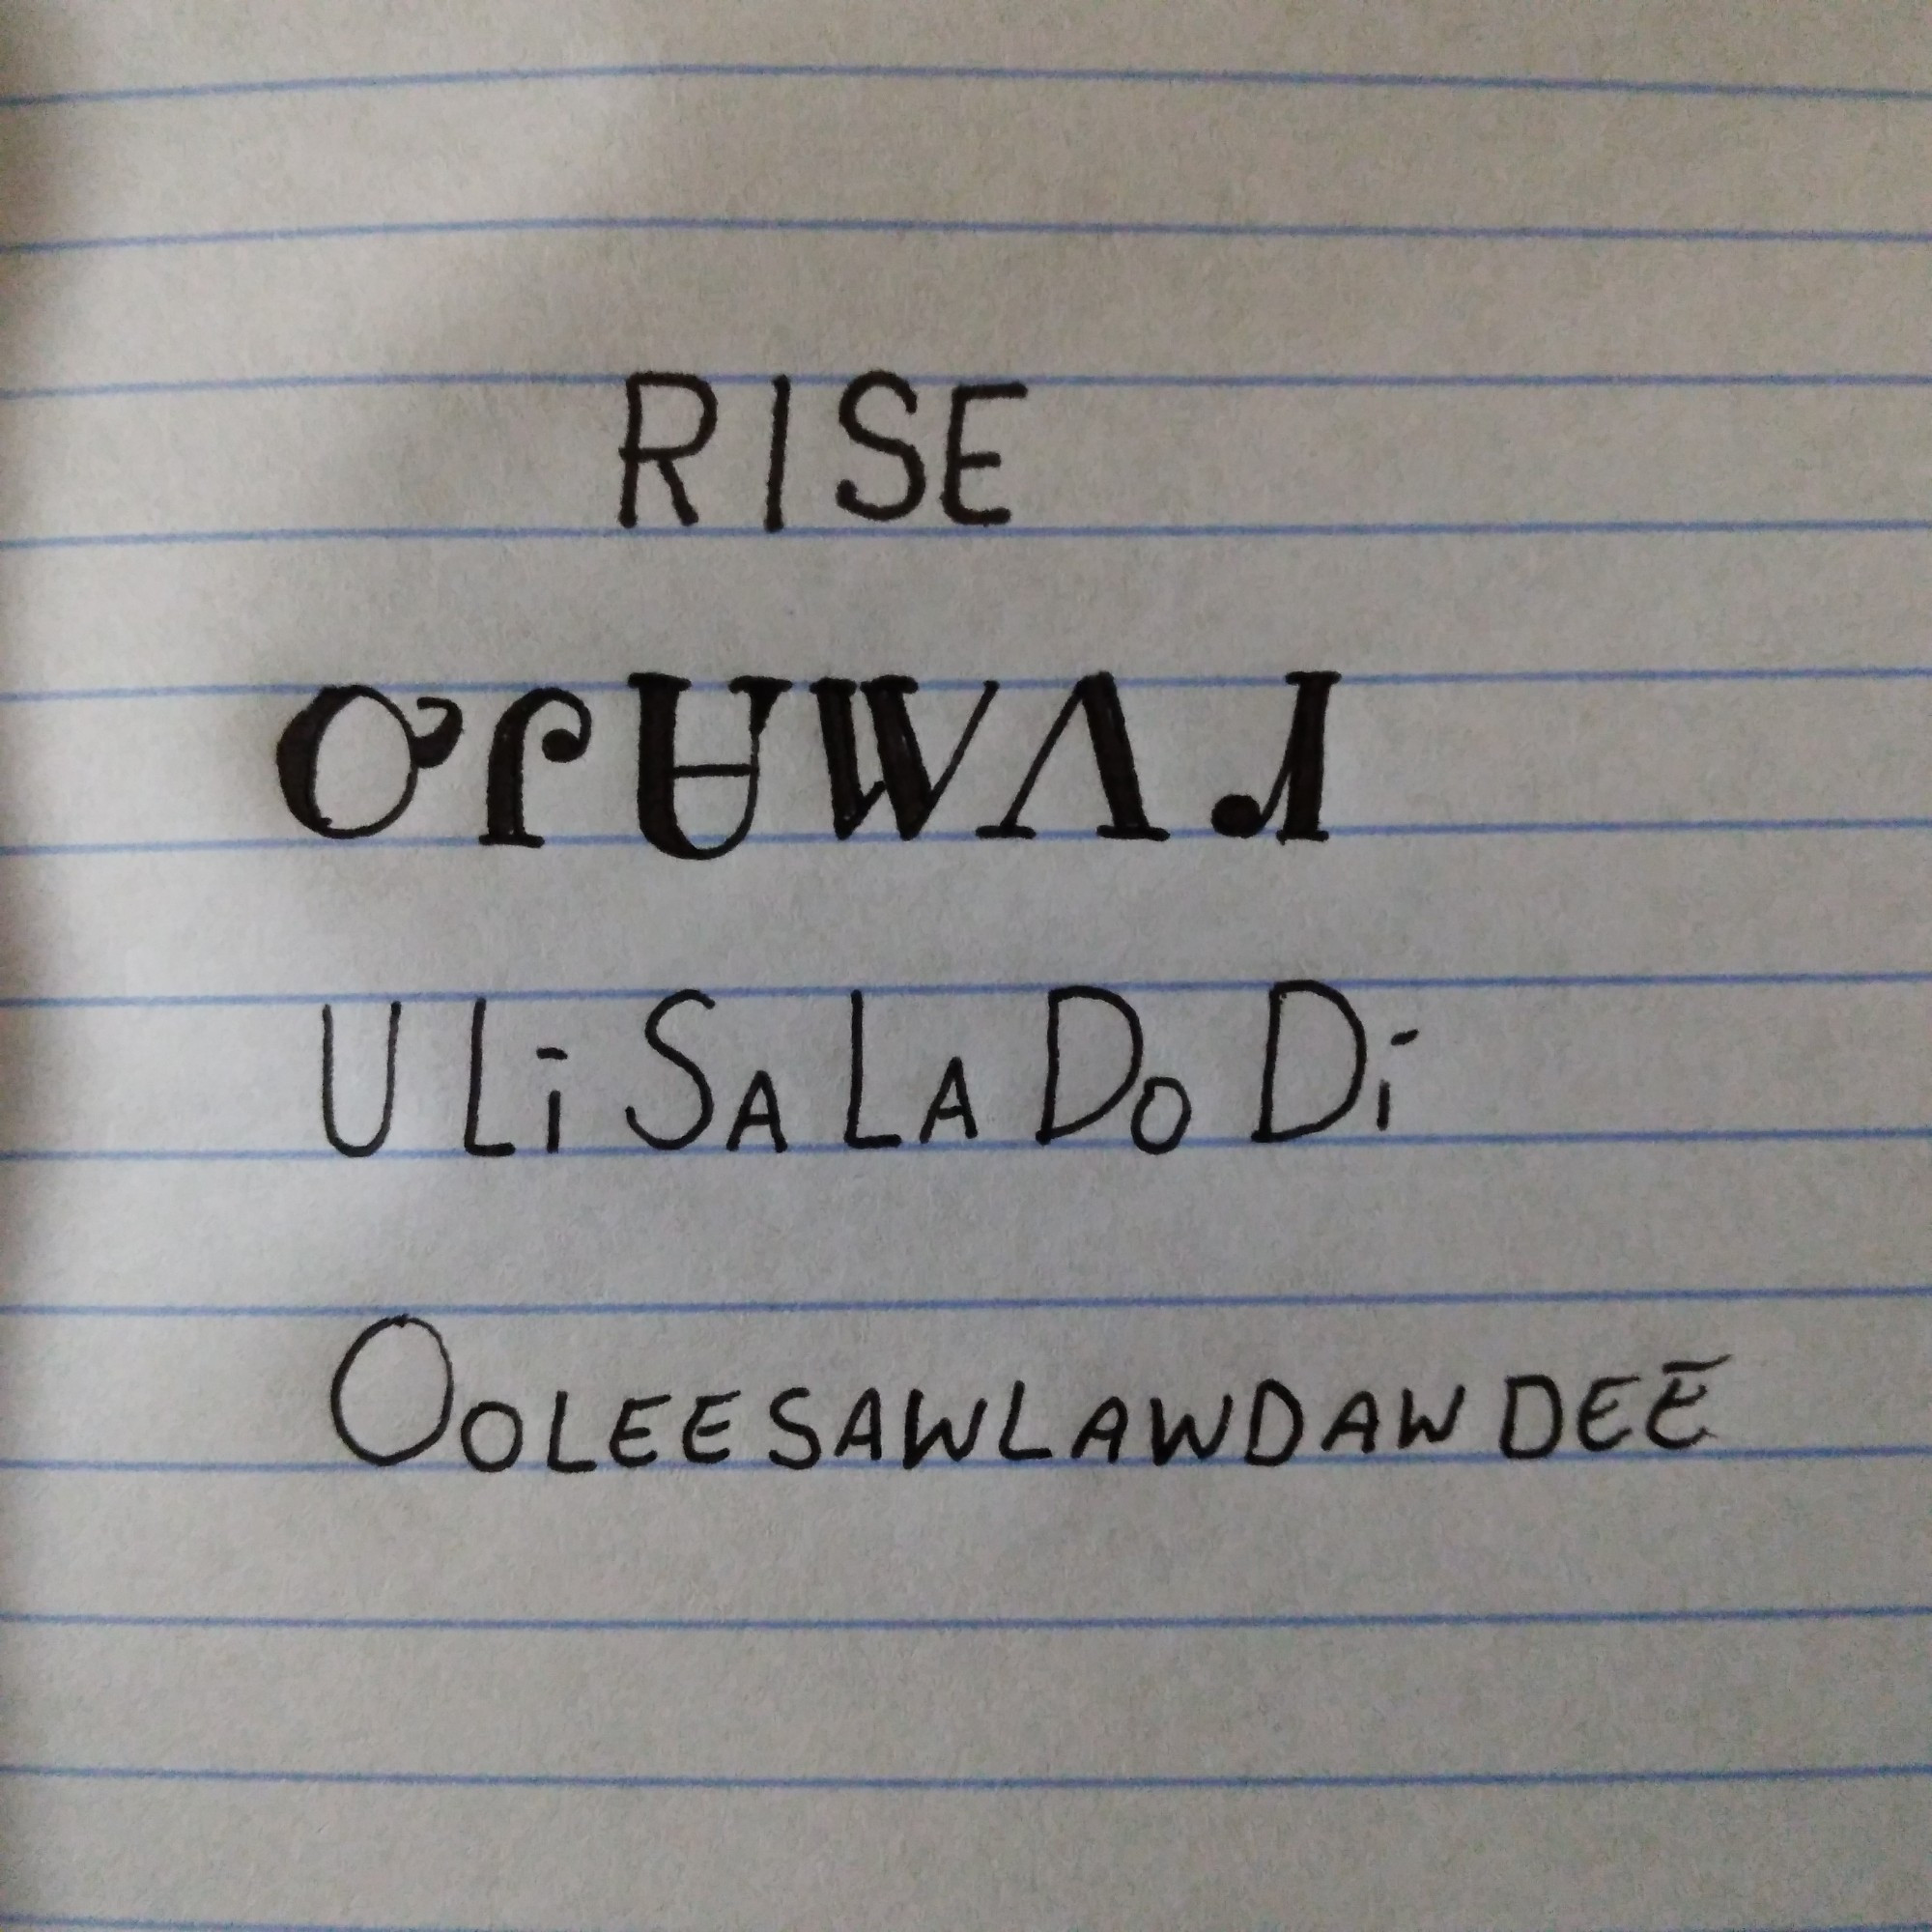 RISE
ᎤᎵᏌᎳᏙᏗ
U Li Sa La Do Di
OOLEESAWLAWDAW DEĒ